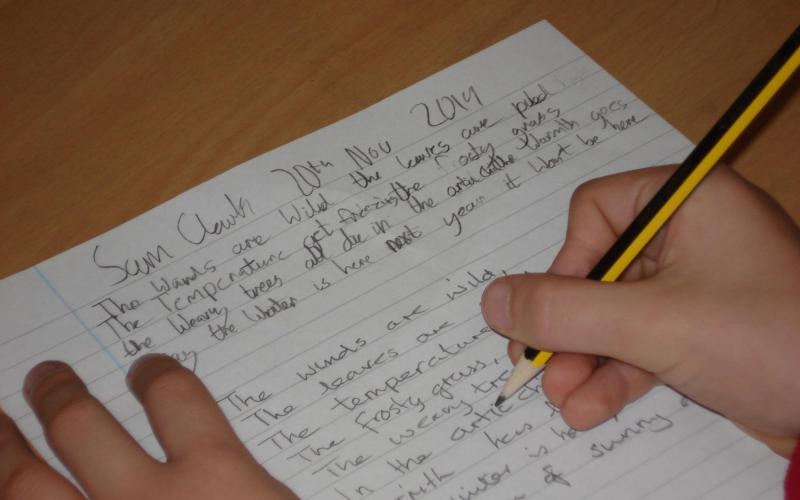 Sam Clark 20th Nov 2014
The Winds are Wild the leaves are piled high
The Temperature get friezing the frosty grass
the Weary trees all die in the artic Warmth goes
away the Winter is here next year it Wont be here
The winds are wild,
The leaves are
The temperature
The frosty grass,
The weary tre
In the artic
has
inter is he
of sunny